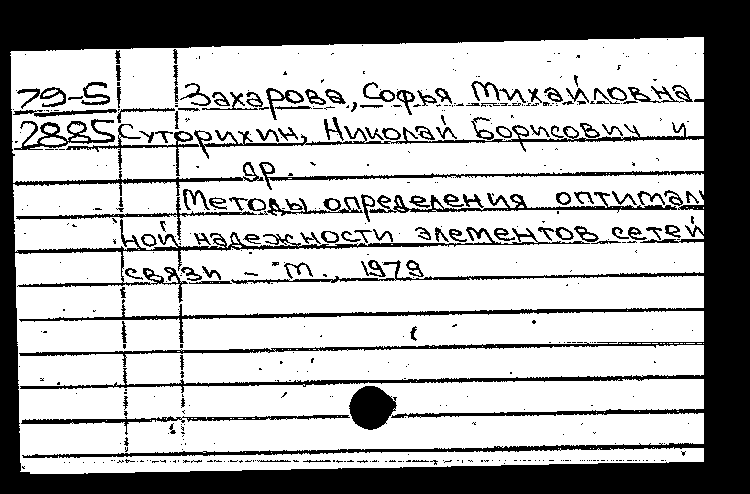 79-5 Захарова, Софья Михайловна
2885 Суторихин, Николай Борисович и
др.
Методы определения оптималь
ной надежности элементов сетей
связи - М., 1979